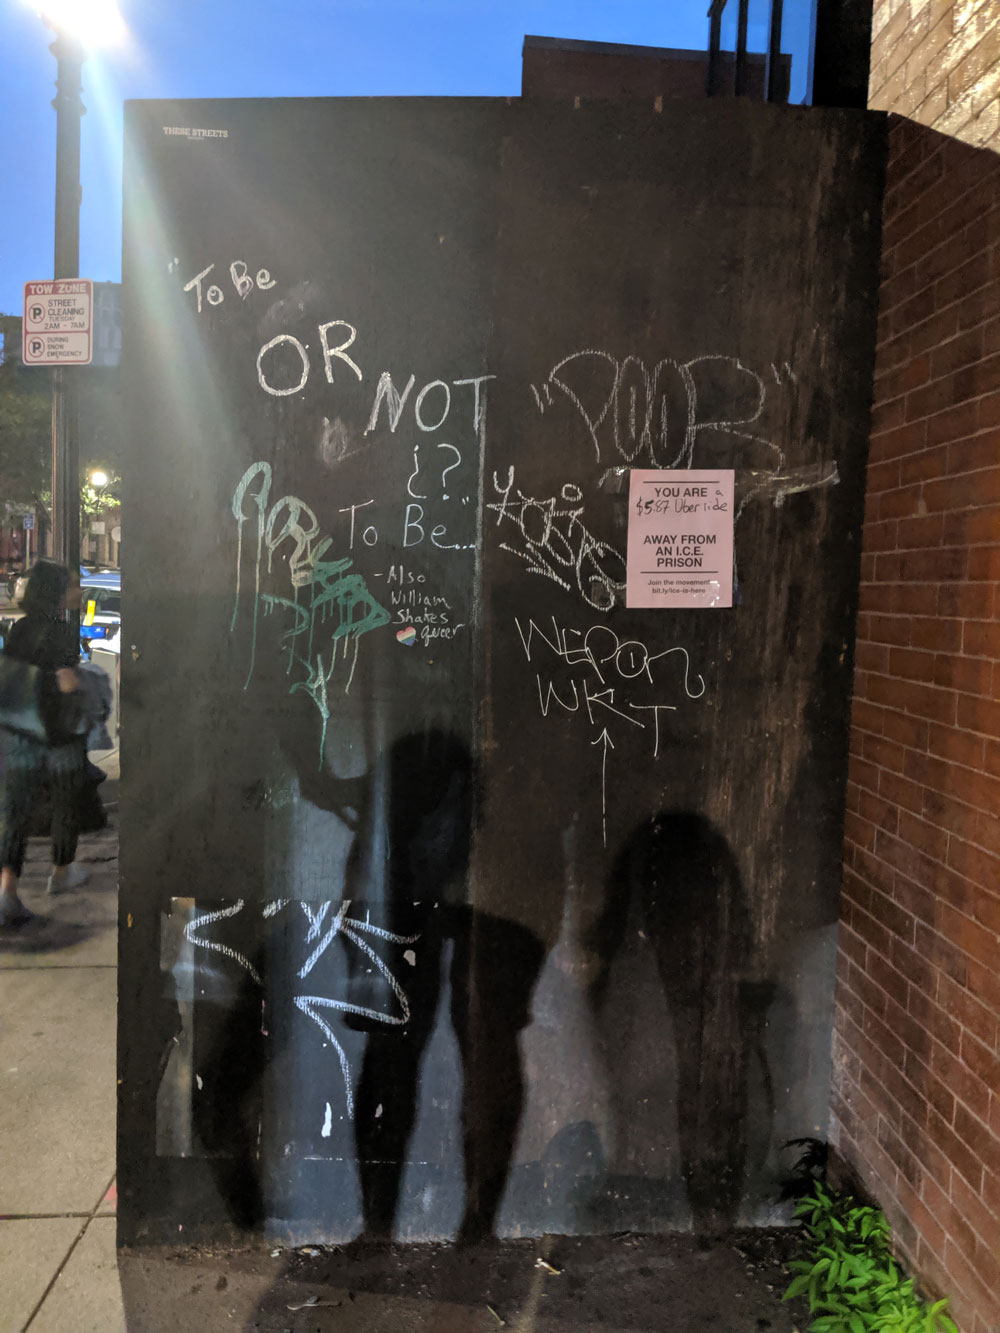 THESE STREETS
TOW ZONE
P STREET
CLEANING
TUESDAY
2AM - 7AM
P DURING
SNOW
EMERGENCY
"To Be
OR
NOT
¿?
To Be..."
-Also
William
Shakes
queer
"POOR"
YOU ARE a
$5.87 Uber ride
AWAY FROM
AN I.C.E.
PRISON
Join the movement
bit.ly/ice-is-here
NEPON
WKT